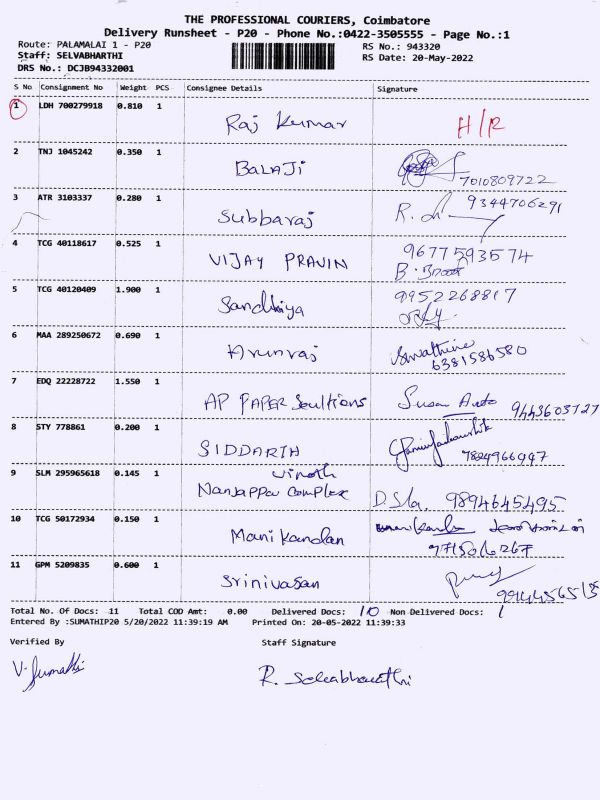 THE PROFESSIONAL COURIERS, Coimbatore
Delivery Runsheet - P20 - Phone No.:0422-3505555 - Page No.:1
Route: PALAMALAI 1 - P20 RS No.: 943320
Staff: SELVABHARTHI RS Date: 20-May-2022
DRS No.: DCJB94332001
S No Consignment No Weight PCS Consignee Details Signature
1 LDH 700279918 0.810 1 Raj Kumar H/R
2 TNJ 1045242 0.350 1 BALAJI 7010809722
3 ATR 3103337 0.280 1 Subbaraj 9344706291
4 TCG 40118617 0.525 1 VIJAY PRAVIN 9677593574
5 TCG 40120409 1.900 1 Sandhiya 9952268817
6 MAA 289250672 0.690 1 Arunraj
6381586580
7 EDQ 22228722 1.550 1 AP PAPER Soultions Susan 9443603727
8 STY 778861 0.200 1 SIDDARTH
7824966997
Vinoth
9 SLM 295965618 0.145 1 Nanjappa Complex 9894645495
10 TCG 50172934 0.150 1 Manikandan
11 GPM 5209835 0.600 1 Srinivasan
Total No. Of Docs: 11 Total COD Amt: 0.00 Delivered Docs: 10 Non Delivered Docs: 1
Entered By :SUMATHIP20 5/20/2022 11:39:19 AM Printed On: 20-05-2022 11:39:33
Verified By Staff Signature
V. Sumathi R. Selvabharathi